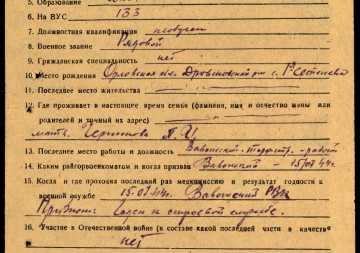 5. Образование
6. На ВУС 133
7. Должностная квалификация необучен
8. Военное звание Рядовой
9. Гражданская специальность нет
10. Место рождения Орловская обл. с.
11. Последнее место жительства
12. Где проживает в настоящее время семья (фамилия, имя и отчество жены или
родителей и точный их адрес)
мать.
13. Последнее место работы и должность Вавожский рабочий
14. Каким райгорвоенкоматом и когда призван Вавожский - 44 г.
15. Когда и где проходил последний раз медкомиссию и результат годности к
военной службе 15.07.44г. Вавожский РВК
Признан: Годен к строевой службе.
16. Участие в Отечественной войне (в составе какой последней части в качестве
нет